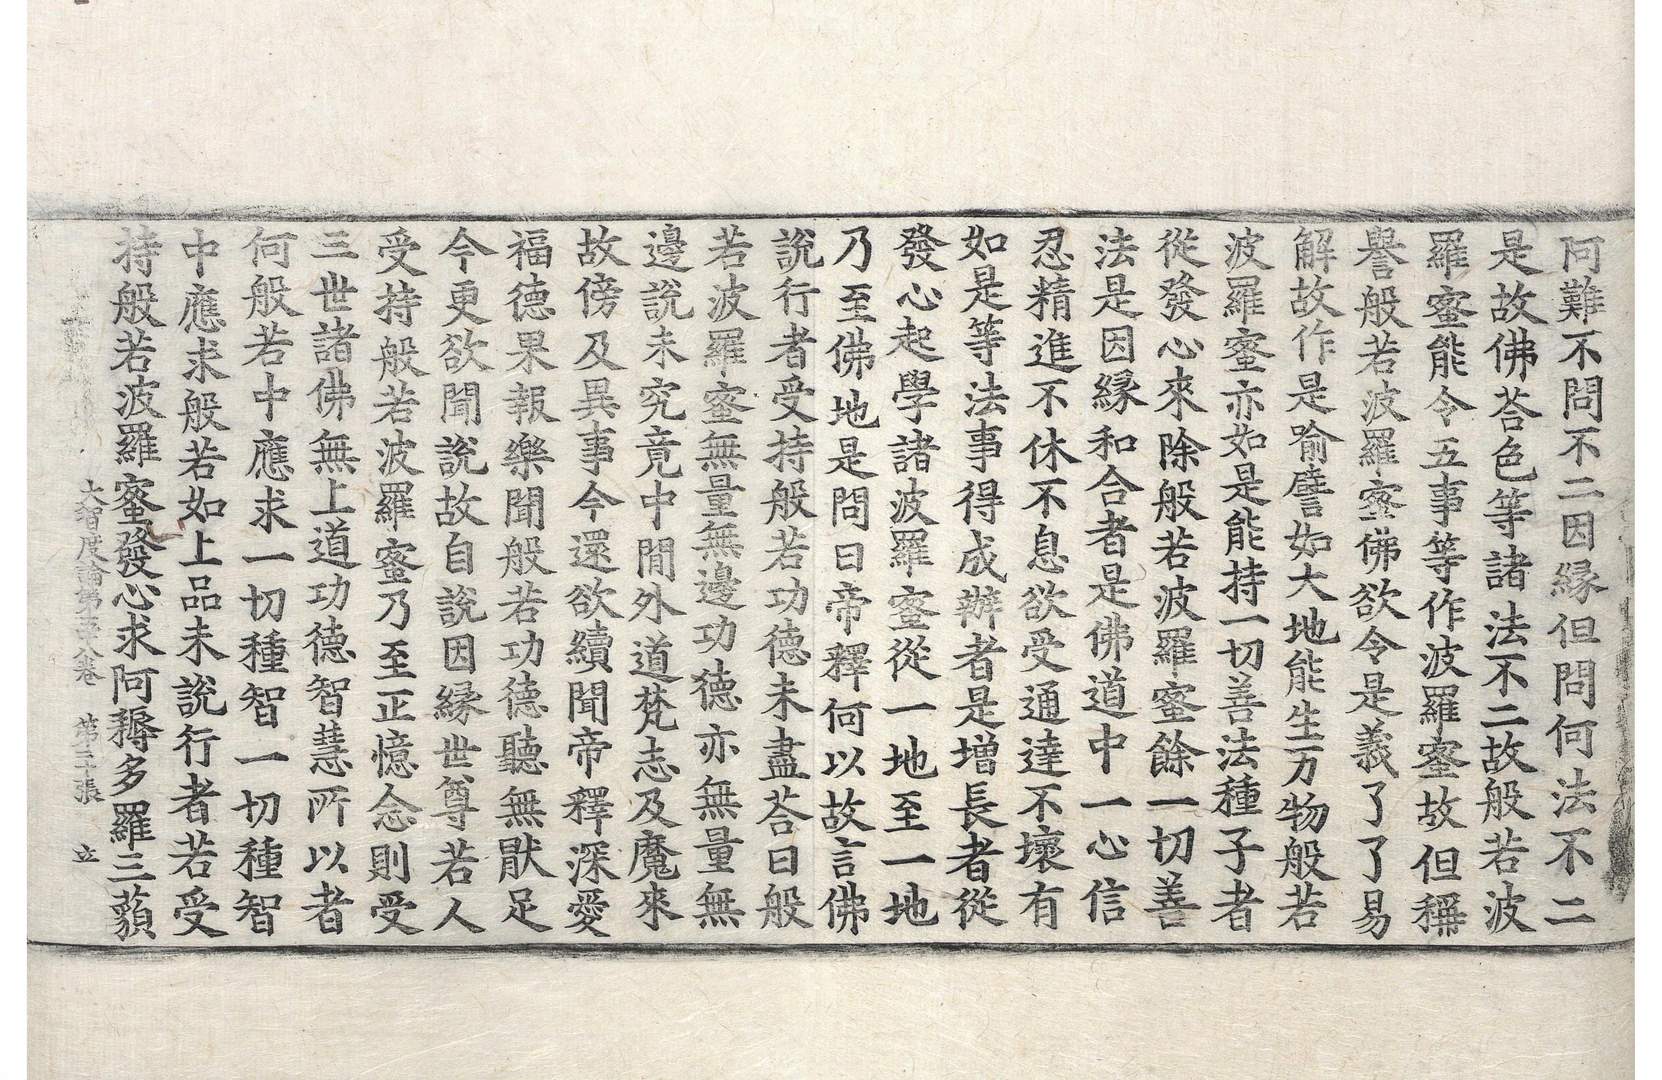 阿難不問不二因縁但問何法不二
是故佛荅色等諸法不二故般若波
羅蜜能令五事等作波羅蜜故但稱
譽般若波羅蜜佛欲令是義了了易
解故作是喻譬如大地能生万物般若
波羅蜜亦如是能持一切善法種子者
從發心來除般若波羅蜜餘一切善
法是因縁和合者是佛道中一心信
忍精進不休不息欲受通達不壞有
如是等法事得成辦者是增長者從
發心起學諸波羅蜜從一地至一地
乃至佛地是問曰帝釋何以故言佛
說行者受持般若功德未盡荅曰般
若波羅蜜無量無邊功德亦無量無
邊說未究竟中間外道梵志及魔來
故傍及異事今還欲續聞帝釋深愛
福德果報樂聞般若功德聽無猒足
今更欲聞說故自說因縁世尊若人
受持般若波羅蜜乃至正憶念則受
三世諸佛無上道功德智慧所以者
何般若中應求一切種智一切種智
中應求般若如上品未說行者若受
持般若波羅蜜發心求阿耨多羅三藐
大智度論第五十八卷 第二十張 立